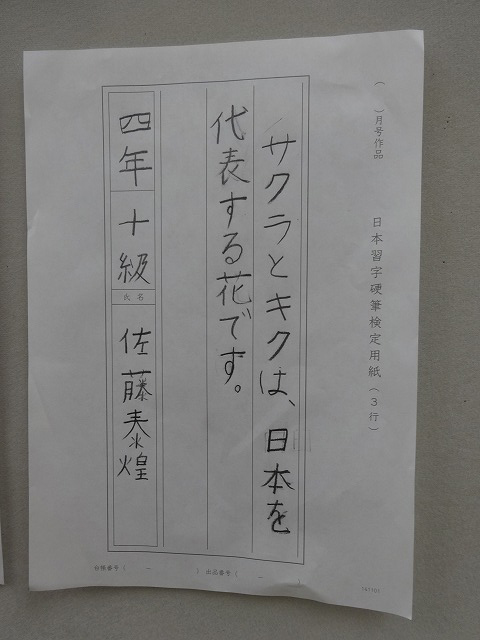 （　）月号作品　日本習字硬筆検定用紙（3行）
サクラとキクは、日本を
代表する花です。
四年　十級　氏名　佐藤泰煌
会様番号（　－　）出品番号（　－　）